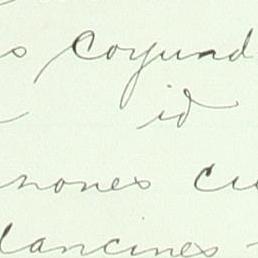 s coyund
id
nones cu
lancines